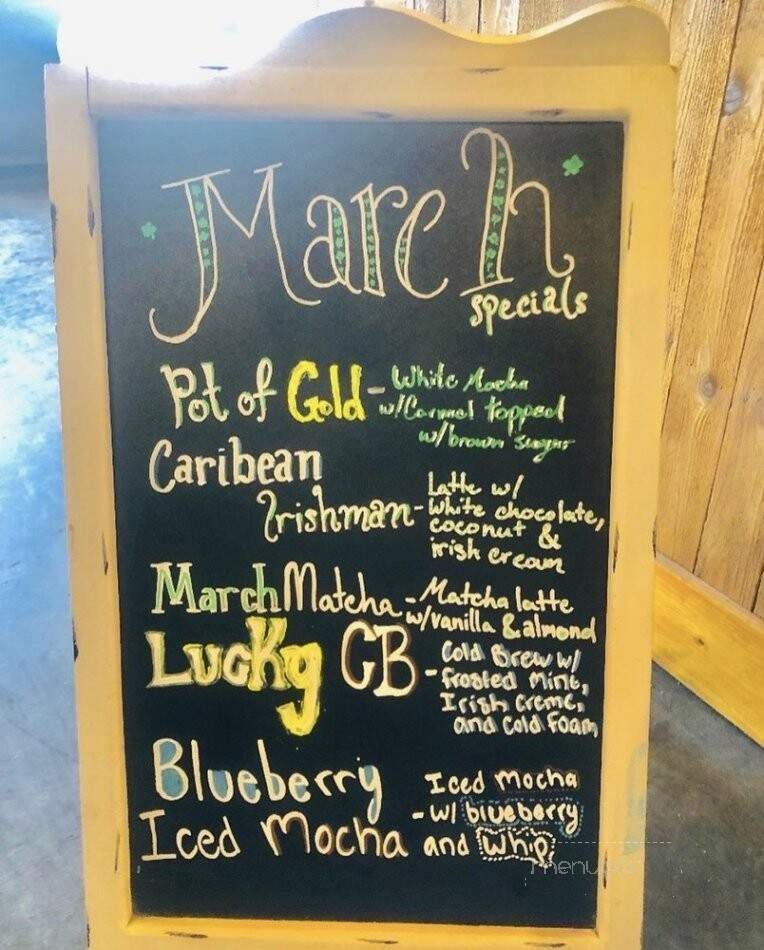 March
specials
Pot of Gold - White Mocha
w/Carmel topped
w/brown sugar
Caribean
Irishman - Latte w/
white chocolate,
coconut &
irish cream
March Matcha - Matcha latte
w/vanilla & almond
Lucky CB - Cold Brew w/
frosted mint,
Irish creme,
and cold foam
Blueberry
Iced Mocha
Iced mocha
- w/ blueberry
and whip